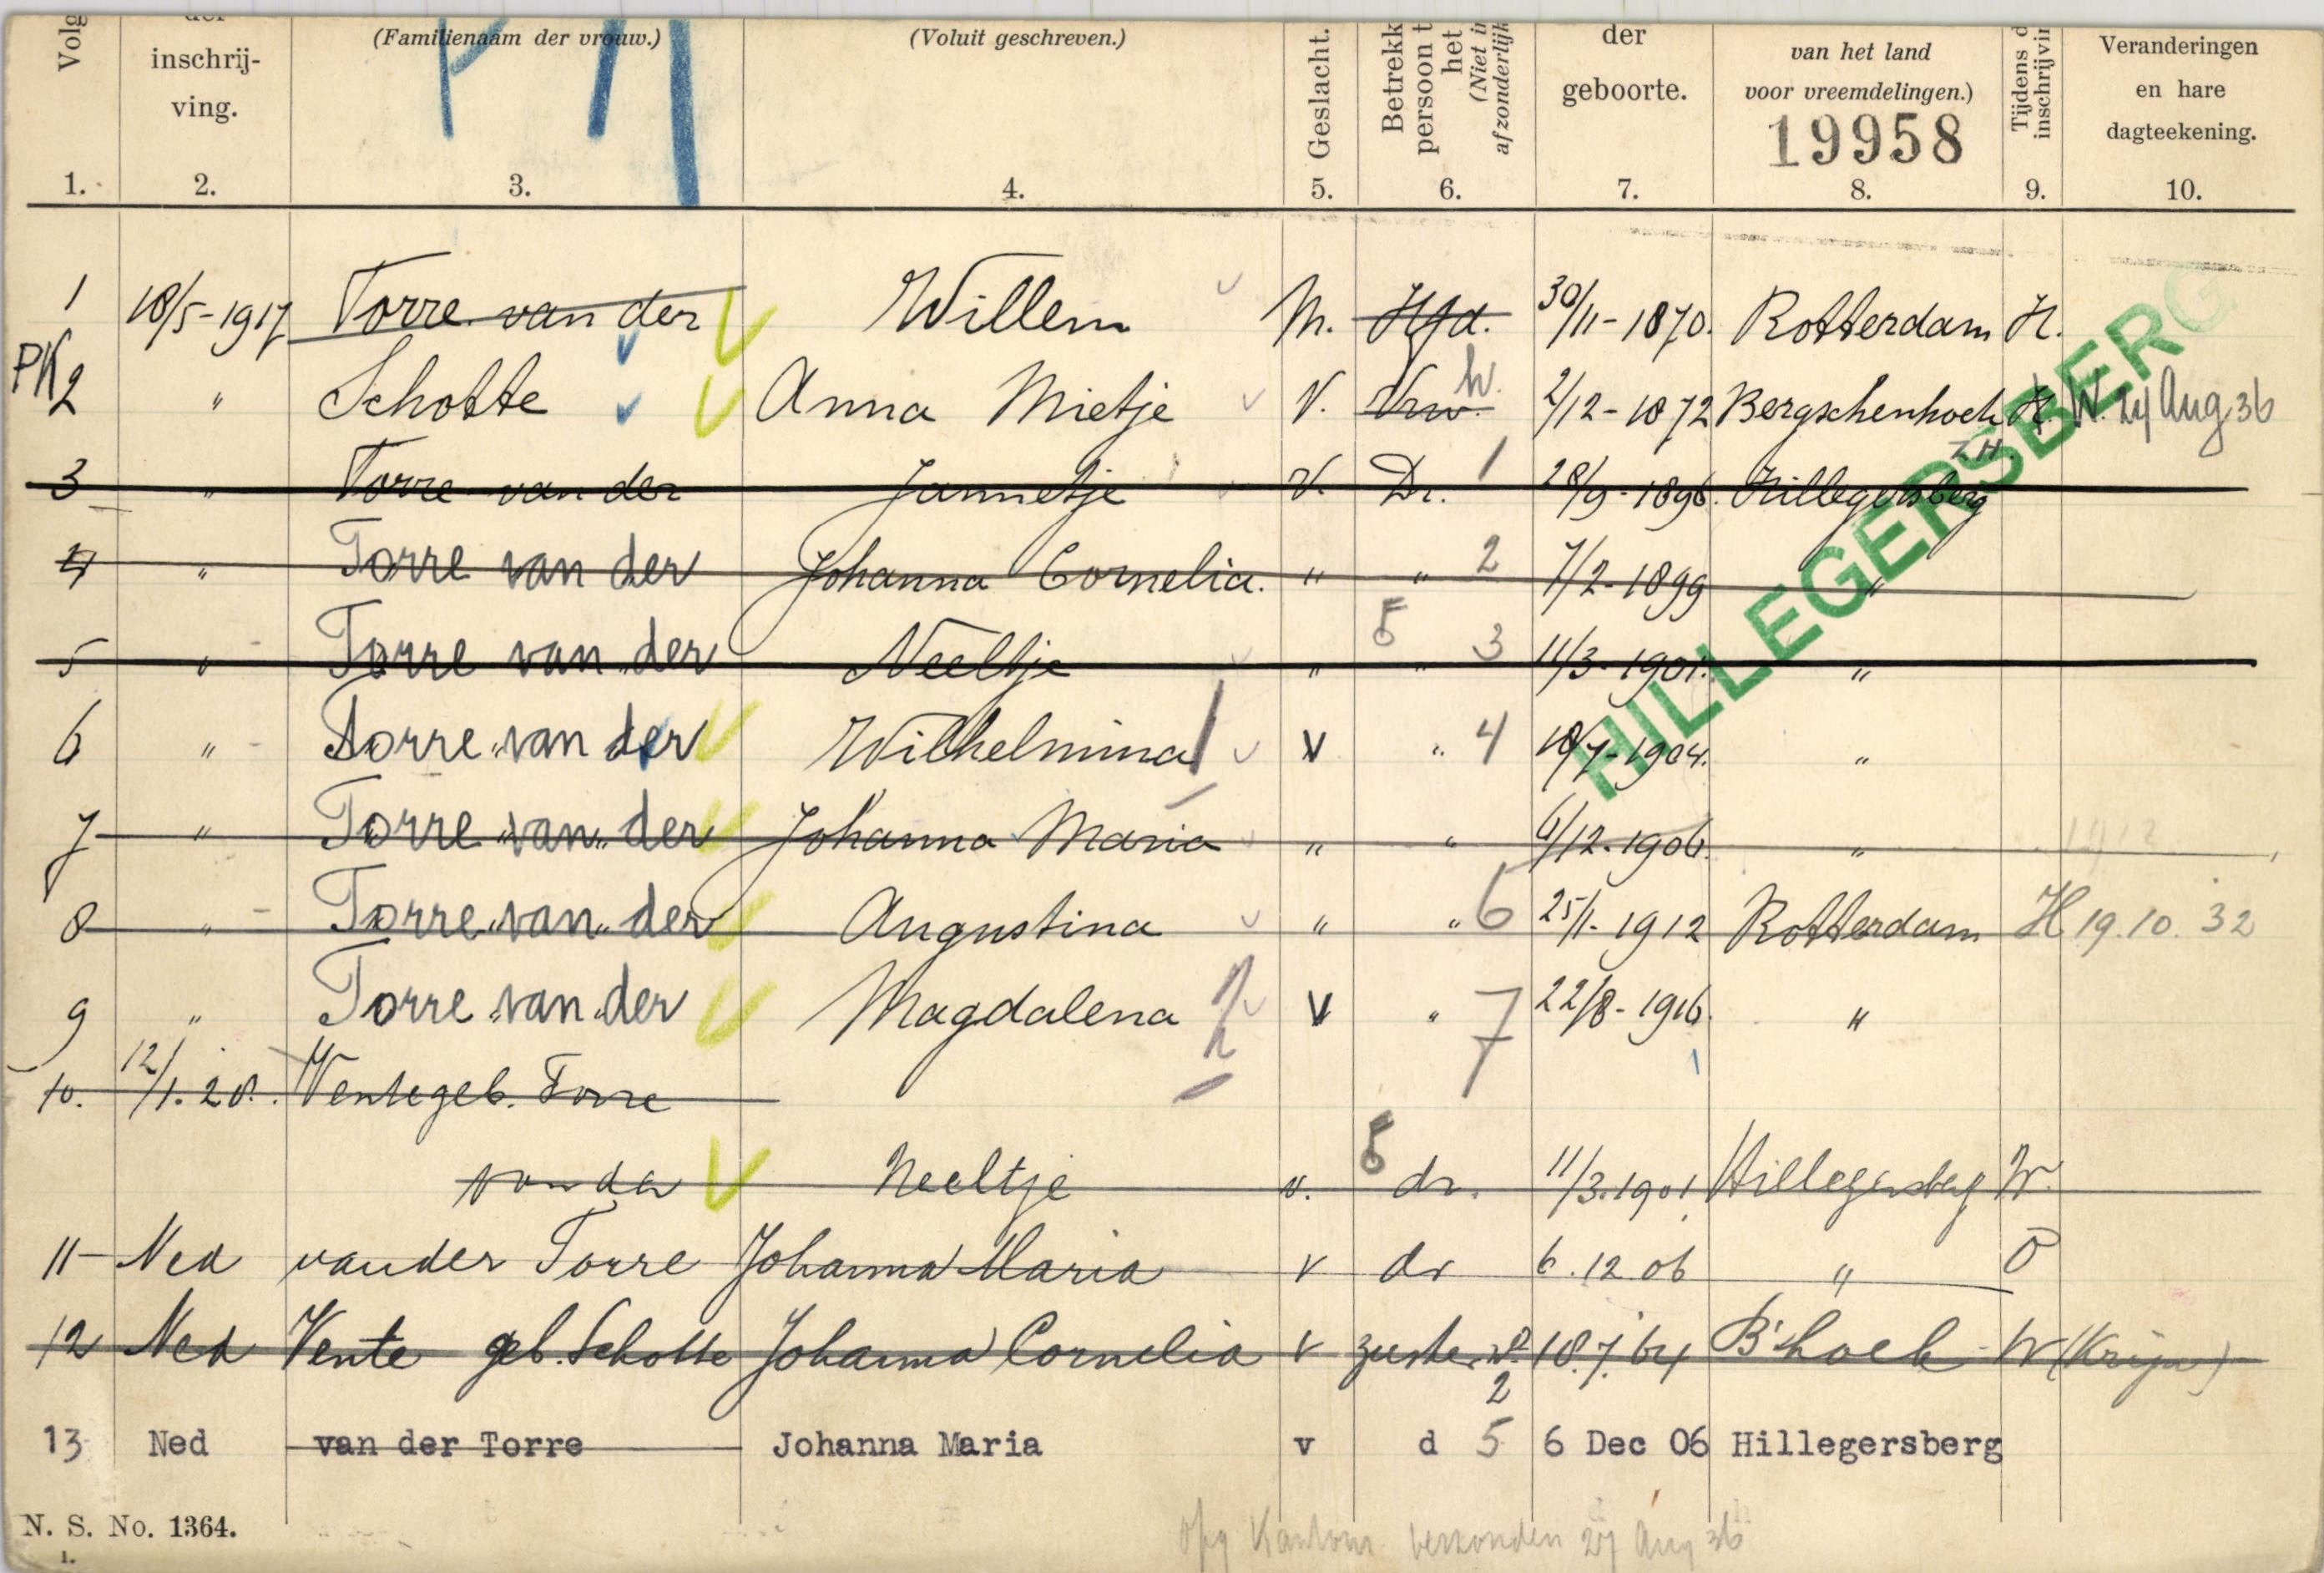 Volg der inschrij- ving. (Familienaam der vrouw.) (Voluit geschreven.) Geslacht. Betrekk persoon t het (Niet in afzonderlijk der geboorte. van het land voor vreemdelingen.) Tijdens d inschrijvin Veranderingen en hare dagteekening.
PK
19958
1. 2. 3. 4. 5. 6. 7. 8. 9. 10.
1 18/5-1917 Torre van der Willem M. Hfd. 30/11-1870. Rotterdam H.
PK 2 " Schotte Anna Mietje V. Vrw. h. 2/12-1872 Bergschenhoek ZH H. W. 24 Aug 36
3 " Torre van der Jannetje V. Dr. 1 28/9-1896. Hillegersberg
4 " Torre van der Johanna Cornelia. " " 2 7/2-1899 "
5 " Torre van der Neeltje " " 3 11/3-1901. "
6 " Torre van der Wilhelmina V " 4 18/7-1904. "
7 " Torre van der Johanna Maria " " 6/12-1906. "
8 " Torre van der Augustina " " 6 25/1-1912 Rotterdam H 19.10.32
9 " Torre van der Magdalena V " 7 22/8-1916. "
HILLEGERSBERG
10. 12/1.28. Vente geb. Torre
van der Neeltje v. dr. 11/3.1901 Hillegersberg W.
11 Ned van der Torre Johanna Maria v dr 6.12.06 " O
12 Ned Vente geb. Schotte Johanna Cornelia v zuster v. 2 18.7.64 B'hoek W (Krijn)
13 Ned van der Torre Johanna Maria v d 5 6 Dec 06 Hillegersberg
N. S. No. 1364.
1.
Opg Kantoor verzonden 27 Aug 36